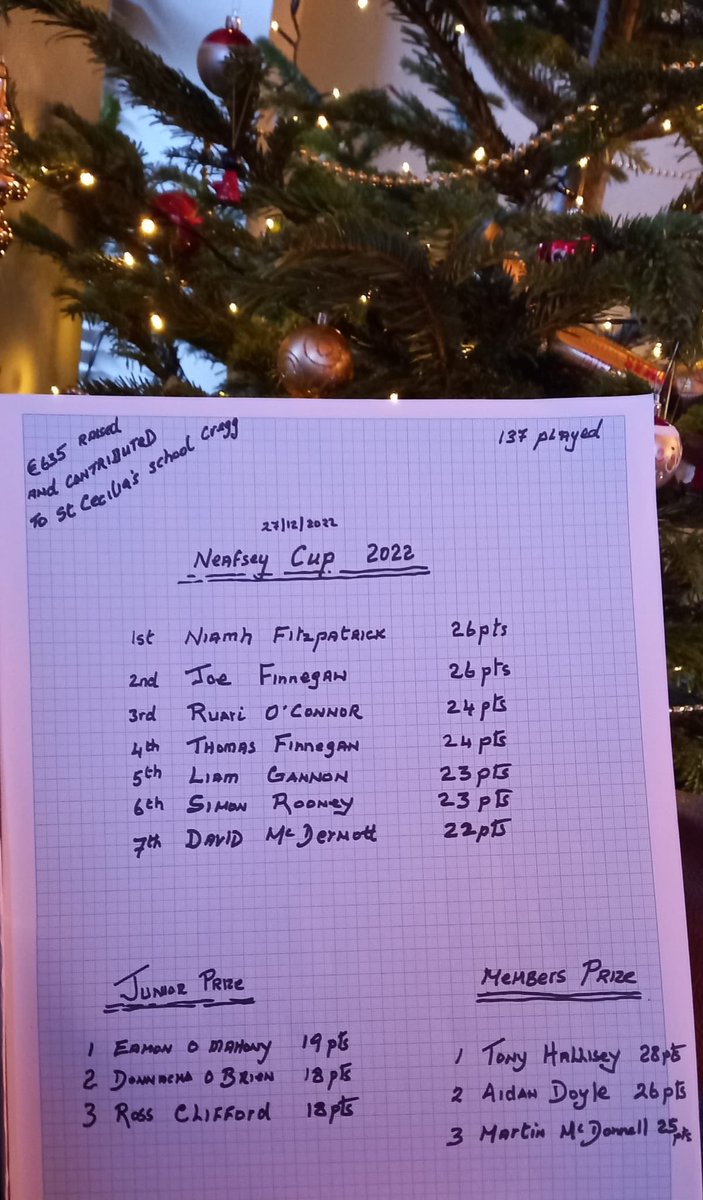 €635 RAISED
AND CONTRIBUTED
TO St Cecilia's school Cragg
137 played
27/12/2022
Neafsey Cup 2022
1st Niamh Fitzpatrick 26pts
2nd Joe Finnegan 26pts
3rd Ruari O'Connor 24pts
4th Thomas Finnegan 24pts
5th Liam Gannon 23pts
6th Simon Rooney 23pts
7th David McDermott 22pts
Junior Prize
1 Eamon O Mahony 19pts
2 Donnacha O Brien 18pts
3 Ross Clifford 18pts
Members Prize
1 Tony Hallisey 28pts
2 Aidan Doyle 26pts
3 Martin McDonnell 25pts